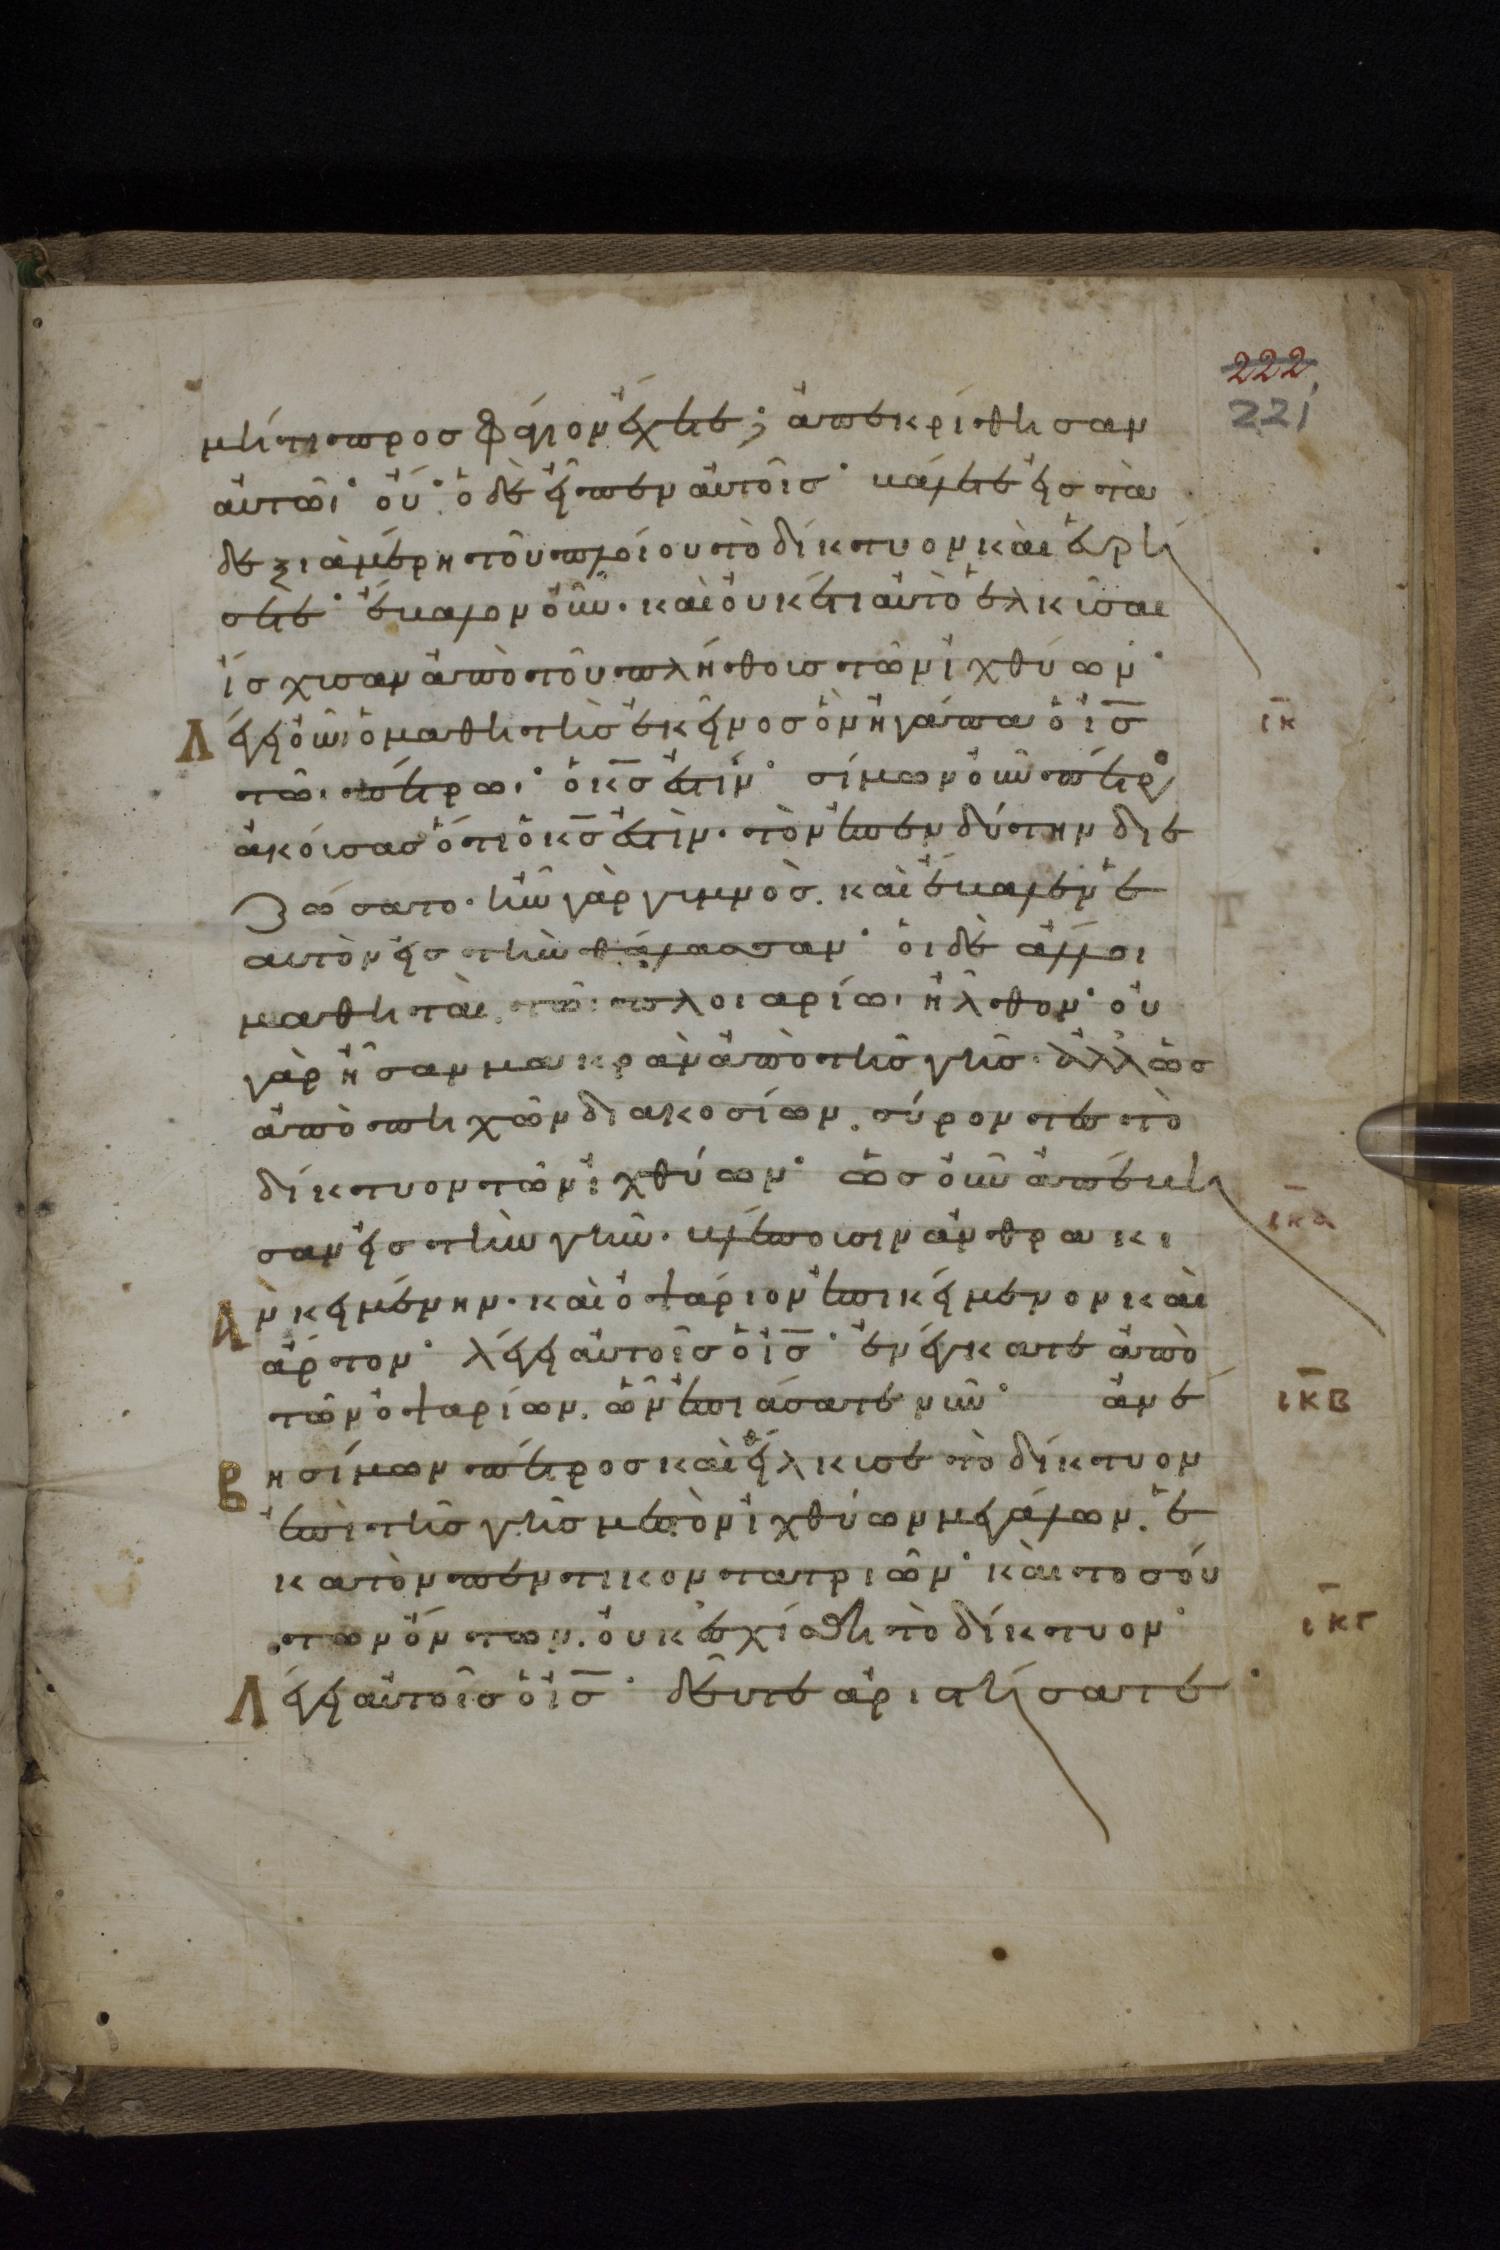 222
221
μήτι προσφάγιον ἔχετε; ἀπεκρίθησαν
ἀυτῶι· ὄυ· ὁ δὲ εἶπεν ἀυτοῖσ· βάλετε ἐισ τὰ
δεξιὰ μέρη τοῦ πλοίου τὸ δίκτυον καὶ ἑυρή
σετε· ἔβαλον ὀῦν· καὶ ὀυκέτι ἀυτὸ ἑλκῦσαι
ἴσχυσαν ἀπὸ τοῦ πλήθουσ τῶν ἰχθύων·
Λέγει ὀῦν ὁ μαθητὴσ ἐκεῖνοσ ὃν ἠγάπα ὁ ἰ̅σ̅
τῶι πέτρωι· ὁ κ̅σ̅ ἐστίν· σίμων ὀῦν πέτρο
ἀκούσασ ὅτι ὁ κ̅σ̅ ἐστὶν· τὸν ἐπενδύτην διε
ζώσατο· ἦν γὰρ γυμνὸσ. καὶ ἔβαλεν ἑ
αυτὸν ἐισ τὴν θάλασσαν· ὁι δὲ ἄλλοι
μαθηταὶ τῶι πλοιαρίωι ἦλθον· ὀυ
γὰρ ἦσαν μακρὰν ἀπὸ τῆσ γῆσ· ἀλλ ὡσ
ἀπὸ πηχῶν διακοσίων. σύροντεσ τὸ
δίκτυον τῶν ἰχθύων· ὡσ ὀῦν ἀπέβη
σαν ἐισ τὴν γῆν· βλέπουσιν ἀνθρακι
ὰν κειμένην· καὶ ὀψάριον ἐπικείμενον καὶ
ἄρτον· λέγει ἀυτοῖσ ὁ ἰ̅σ̅· ἐνέγκατε ἀπὸ
τῶν ὀψαρίων. ὧν ἐπιάσατε νῦν· ἀνέ
βη σίμων πέτροσ καὶ εἵλκυσε τὸ δίκτυον
ἐπὶ τῆσ γῆσ μεστὸν ἰχθύων μεγάλων. ἑ
κατὸν πεντικοντατριῶν· καὶ τοσού
των ὄντων. ὀυκ ἐσχίσθη τὸ δίκτυον·
Λέγει ἀυτοῖσ ὁ ἰ̅σ̅· δεῦτε ἀριστήσατε·
ικ
ικα
ικβ
ικγ